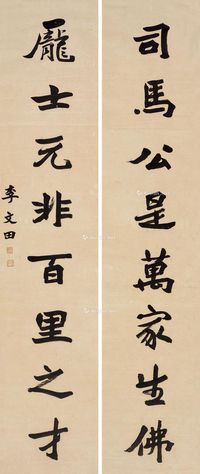 司馬公是萬家生佛
龐士元非百里之才
李文田